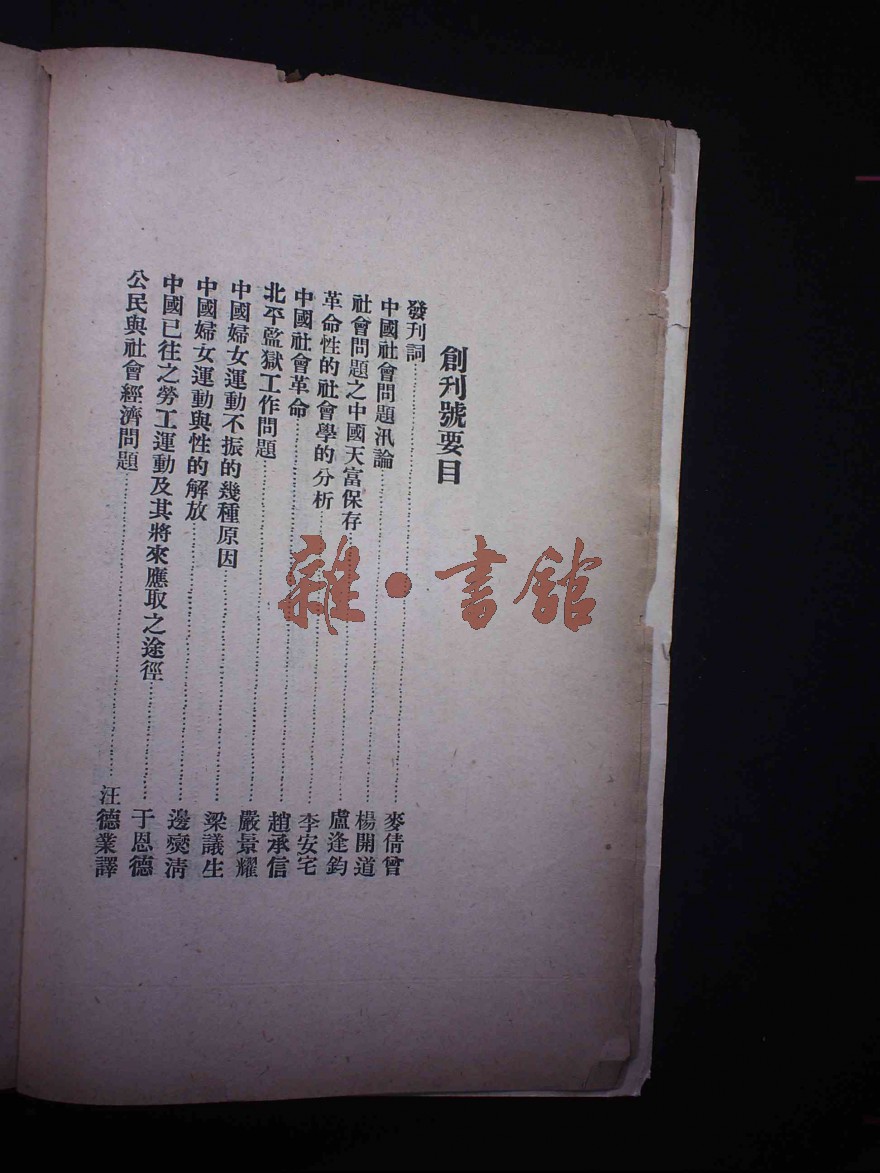 創刊號要目
發刊詞……麥倩曾
中國社會問題汎論……楊開道
社會問題之中國天富保存……盧逢鈞
革命性的社會學的分析……李安宅
中國社會革命……趙承信
北平監獄工作問題……嚴景耀
中國婦女運動不振的幾種原因……梁議生
中國婦女運動與性的解放……邊燮清
中國已往之勞工運動及其將來應取之途徑……于恩德
公民與社會經濟問題……汪德業譯
雜·書館